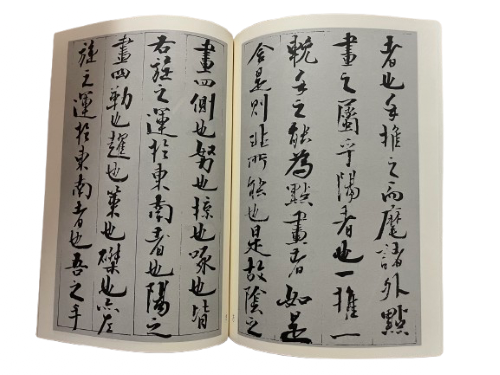 者也手推之而麾諸外點
畫之闔乎陽者也一推一
輓手之能為點畫者如是
舍是則非所能也是故陰之
畫四側也努也掠也啄也皆
右旋之運於東南者也陽之
畫四勒也趯也策也磔也亦左
旋之運於東南者也吾之手